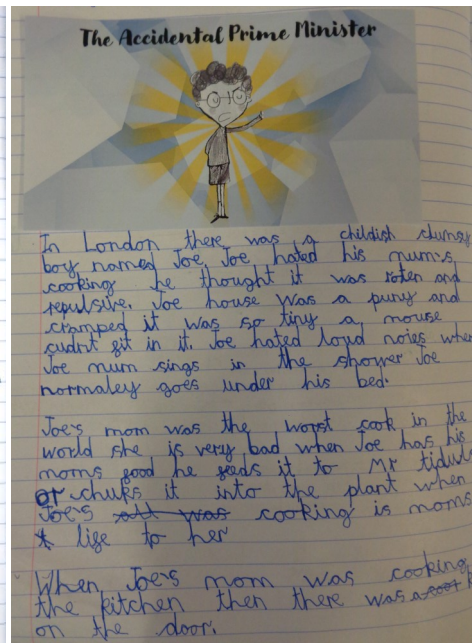 The Accidental Prime Minister
In London there was a childish clumsy
boy named Joe, Joe hated his mum's
cooking he thought it was roten and
repulsive. Joe house was a puny and
cramped it was so tiny a mouse
cudnt fit in it. Joe hated loud noies when
Joe mum sings in the shower Joe
normaley goes under his bed.
Joe's mom was the worst cook in the
world she is very bad when Joe has his
moms food he feeds it to Mr
or chuks it into the plant when
Joe's cooking is moms
life to her
When Joe's mom was cooking
the kitchen then there was
on the door.